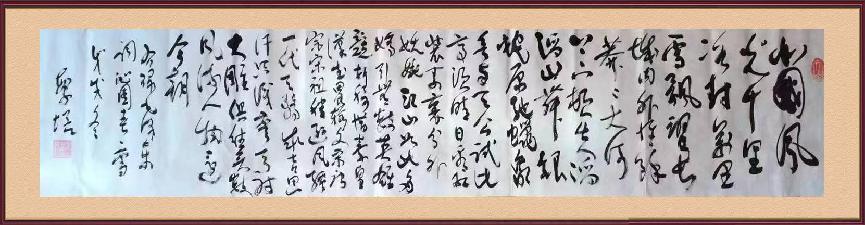 北國風
光千里
冰封萬里
雪飄望長
城內外惟餘
莽々大河
上下頓失滔
滔山舞銀
蛇原馳蠟象
欲與天公試比
高須晴日看紅
裝素裹分外
妖嬈江山如此多
嬌引無數英雄
競折腰惜秦皇
漢武略輸文采唐
宗宋祖稍遜風騷
一代天驕成吉思
汗只識彎弓射
大雕俱往矣數
風流人物還
今朝
毛澤東
詞沁園春雪
戊戌冬